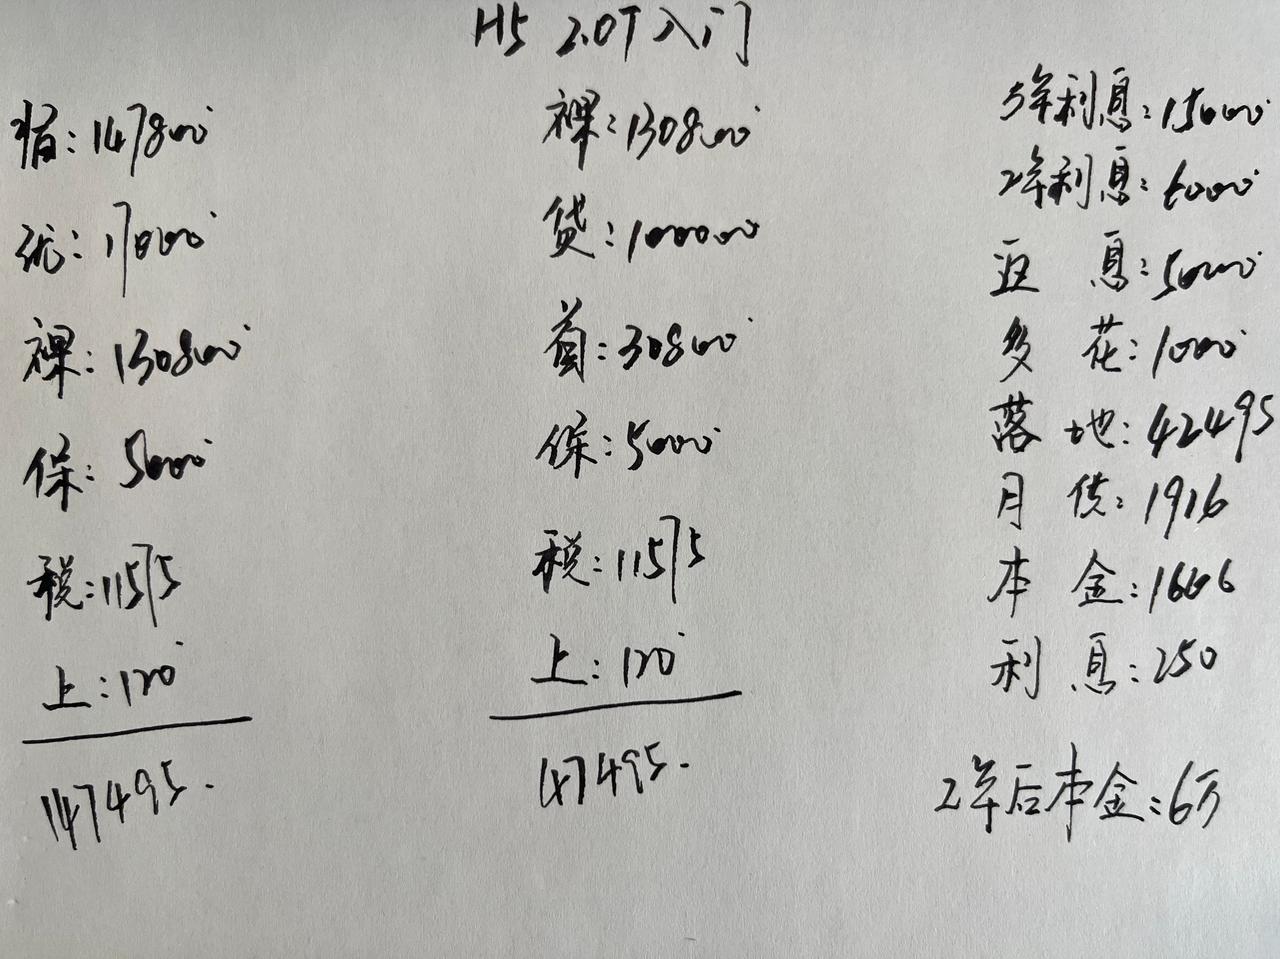 H5 2.0T 入门
指: 147800
优: 17000
裸: 130800
保: 5000
税: 11575
上: 120
147495.
裸: 130800
贷: 100000
首: 30800
保: 5000
税: 11575
上: 120
47495.
5年利息: 15000
2年利息: 6000
返 息: 5000
多 花: 1000
落 地: 42495
月 供: 1916
本 金: 1666
利 息: 250
2年后本金: 6万